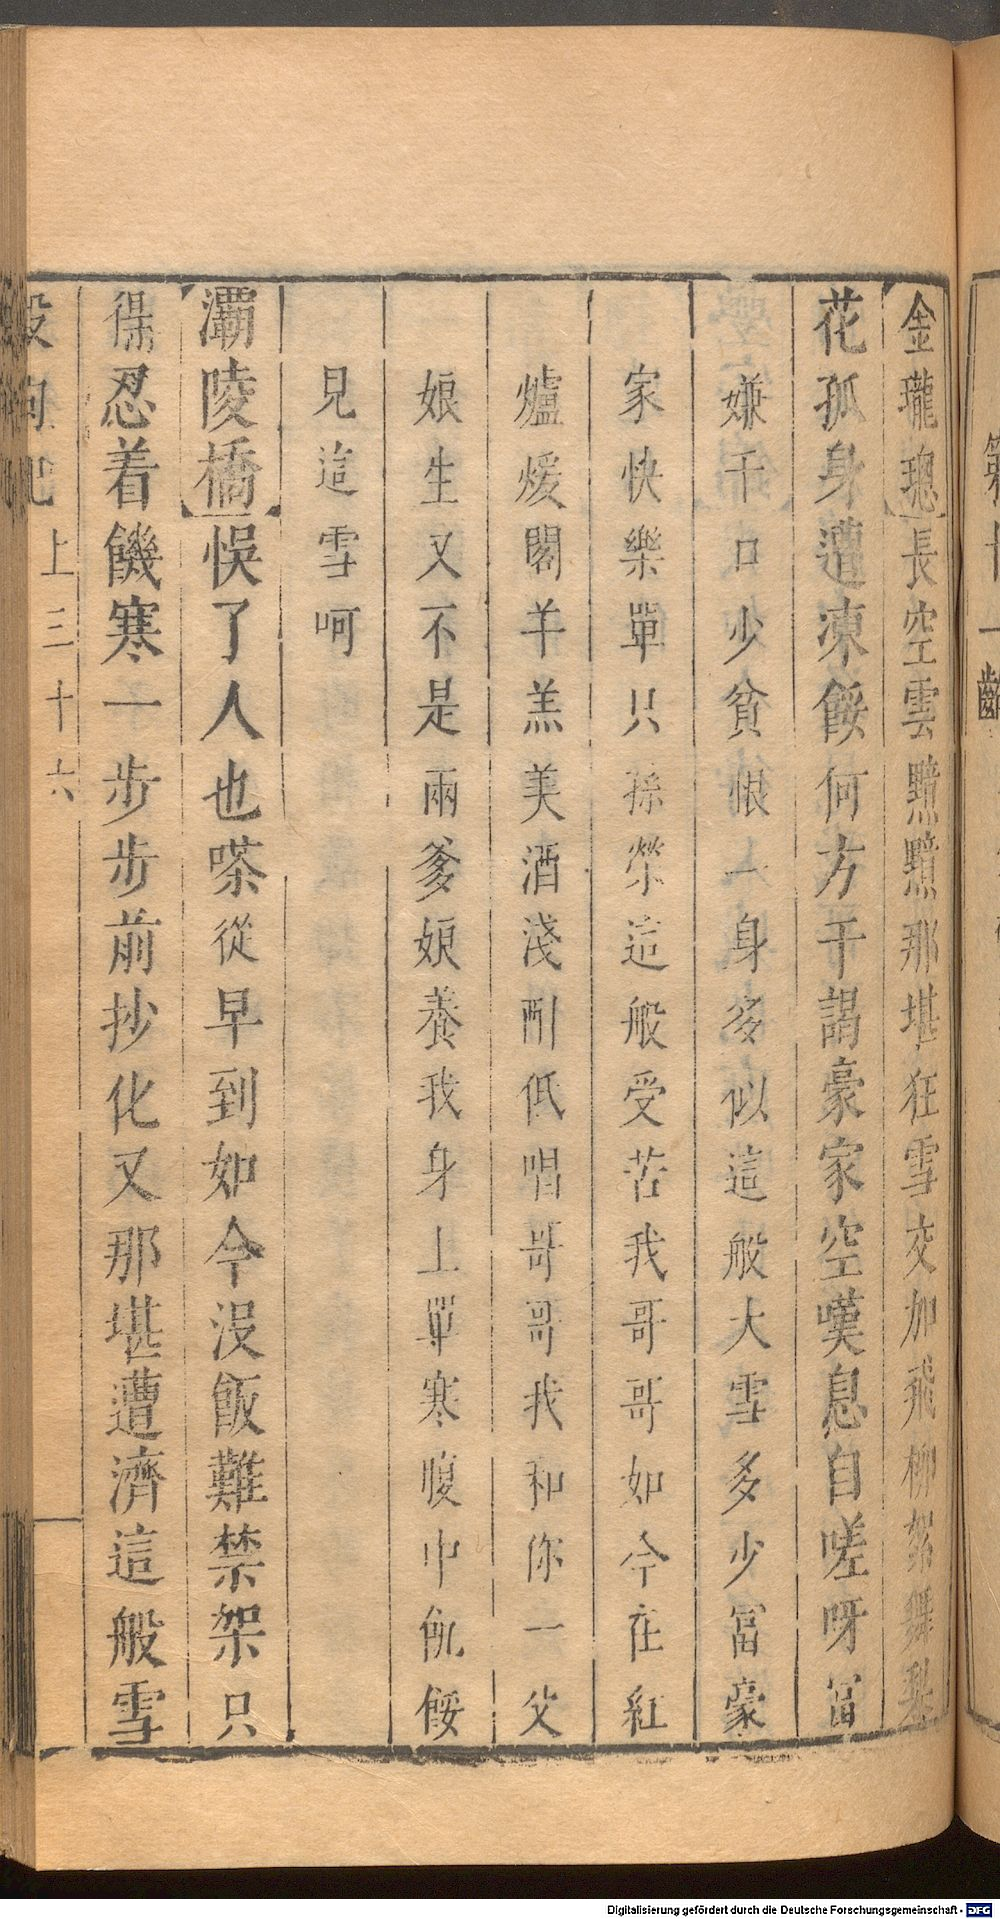 金瓏璁長空雲黯黯那堪狂雪交加飛柳絮舞梨
花孤身遭凍餒何方干謁豪家空嘆息自嗟呀富
嫌千口少貧恨一身多似這般大雪多少富豪
家快樂單只孫榮這般受苦我哥哥如今在紅
爐煖閣羊羔美酒淺斟低唱哥哥我和你一父
娘生又不是兩爹娘養我身上單寒腹中飢餒
見這雪呵
灞陵橋悞了人也嗏從早到如今沒飯難禁架只
得忍着饑寒一步步前抄化又那堪遭濟這般雪
殺狗記 上三十六
Digitalisierung gefördert durch die Deutsche Forschungsgemeinschaft - DFG